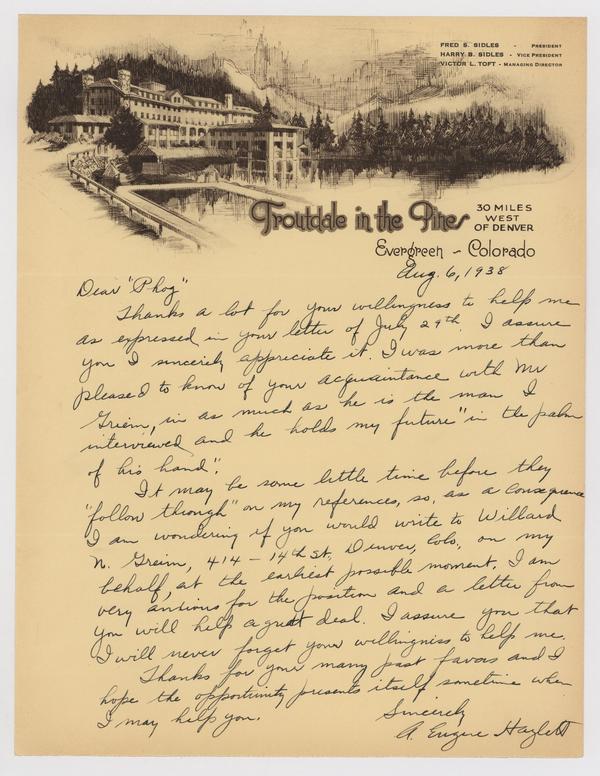 FRED S. SIDLES - PRESIDENT
HARRY B. SIDLES - VICE PRESIDENT
VICTOR L. TOFT - MANAGING DIRECTOR
Troutdale in the Pines
30 MILES
WEST
OF DENVER
Evergreen - Colorado
Aug. 6, 1938
Dear "Phog"
Thanks a lot for your willingness to help me
as expressed in your letter of July 29th. I assure
you I sincerely appreciate it. I was more than
pleased to know of your acquaintance with Mr
Greim, in as much as he is the man I
interviewed and he holds my future "in the palm
of his hand".
It may be some little time before they
"follow through" on my references, so, as a consequence
I am wondering if you would write to Willard
N. Greim, 414 - 14th St., Denver, Colo., on my
behalf, at the earliest possible moment. I am
very anxious for the position and a letter from
you will help a great deal. I assure you that
I will never forget your willingness to help me.
Thanks for your many past favors and I
hope the opportunity presents itself sometime when
I may help you.
Sincerely
A. Eugene Hazlett